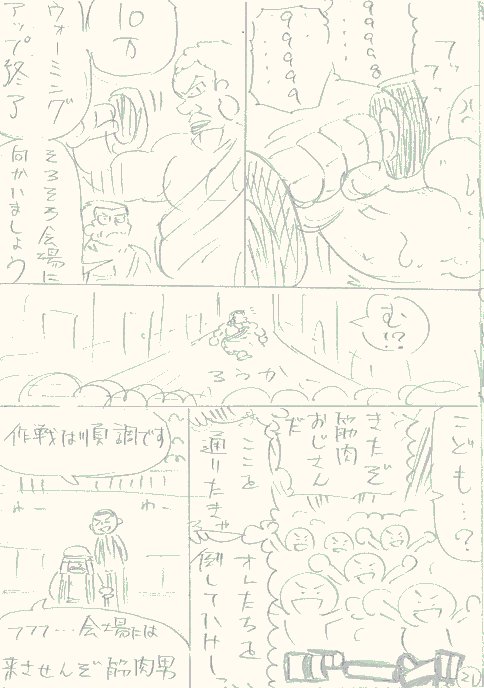 99998
……
99999
……
10万
ウォーミング
アップ終了
そろそろ会場に
向かいましょう
む!?
ろうか
こども…?
きたぞ
筋肉
おじさん
だ
ここを
通りたきゃ
オレたちを
倒してい
作戦は順調です
わー
わー
フフフ…会場には
来させんぞ筋肉男
21